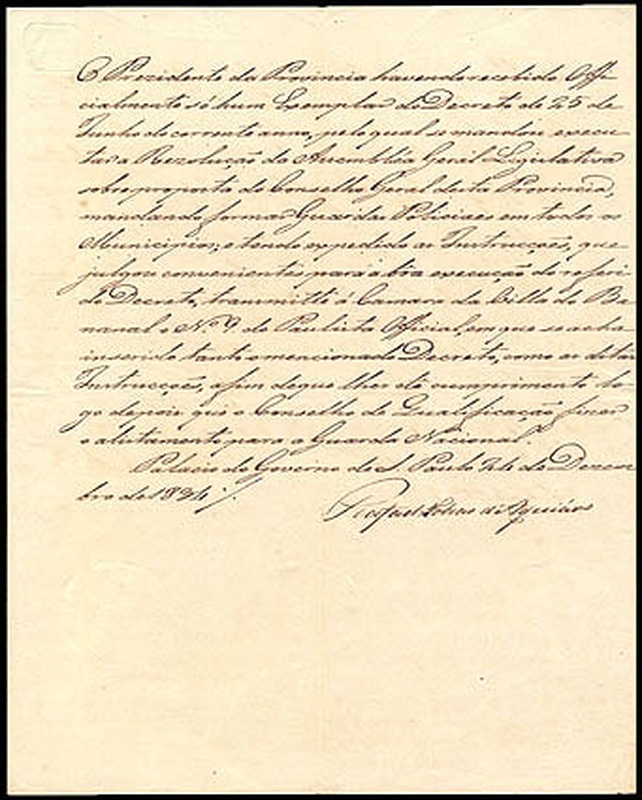 O Prezidente da Provincia havendo recebido Offi-
cialmente só hum Exemplar do Decreto de 25 de
Junho do corrente anno, pelo qual se mandou execu-
tar a Rezolução da Assembléa Geral Legislativa
sobre proposta do Conselho Geral desta Provincia,
mandando formar Guardas Policiaes em todos os
Municipios; e tendo expedido as Instrucções, que
julgou convenientes para a bôa execução do referi-
do Decreto, transmitte á Camara da Villa do Ba-
nanal o Nº 9 do Paulista Official, em que se acha
inserido tanto o mencionado Decreto, como as ditas
Instrucções, afim de que lhes dê cumprimento lo-
go depois que o Conselho de Qualificação fizer
o alistamento para a Guarda Nacional.
Palacio do Governo de S. Paulo 24 de Dezem-
bro de 1834
Rafael Tobias de Aguiar